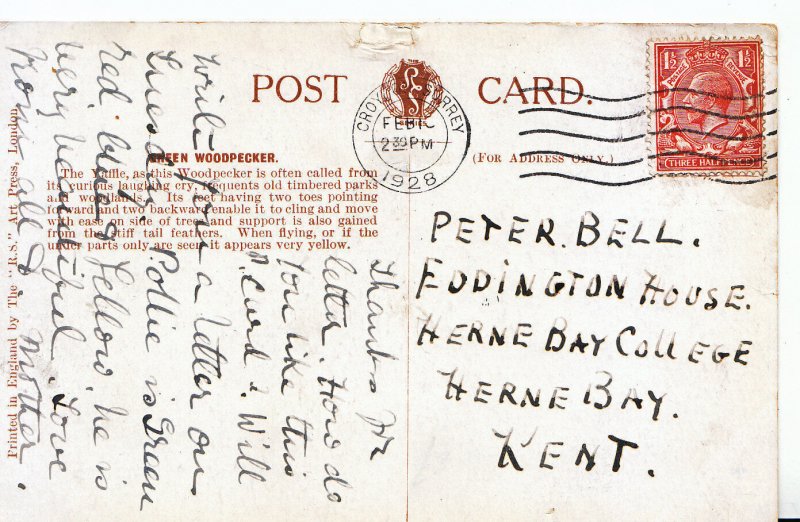 POST CARD.
CROYDON SURREY
FEB 10
2 30 PM
1928
1½ 1½
THREE HALFPENCE
GREEN WOODPECKER.
The Yaffle, as this Woodpecker is often called from
its curious laughing cry, frequents old timbered parks
and woodlands. Its feet having two toes pointing
forward and two backward enable it to cling and move
with ease on side of tree and support is also gained
from the stiff tail feathers. When flying, or if the
under parts only are seen it appears very yellow.
(FOR ADDRESS ONLY.)
Printed in England by The "R.S." Art Press, London.
Thanks for
letter. How do
you like this
P. card? Will
write you a letter on
Tuesday. Pollie is Green
red & Yellow, he is
very beautiful. Love
from all & Mother.
PETER. BELL.
EDDINGTON HOUSE.
HERNE BAY COLLEGE
HERNE BAY.
KENT.